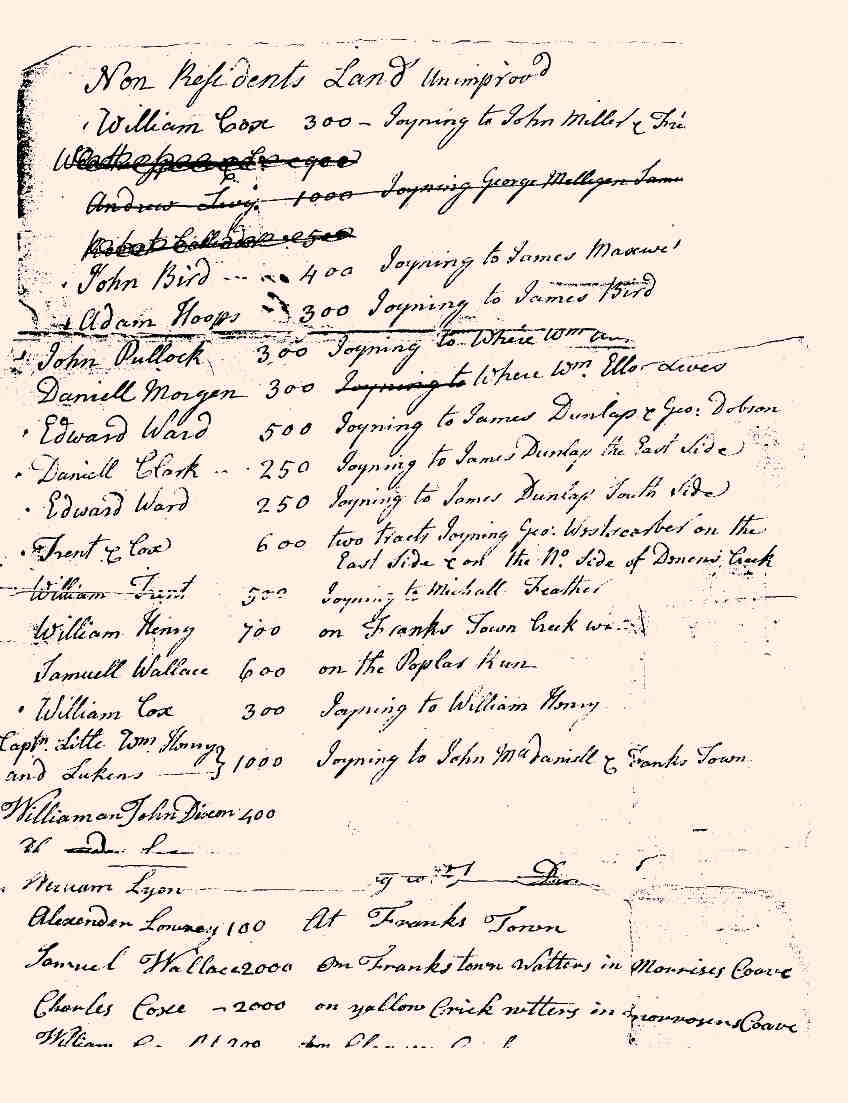 Non Residents Land Unimprovd
William Cox 300 - Joyning to John Miller &
900
Andrew Levy 1000 Joyning George Mellegen
Robert 500
John Bird 400 Joyning to James
Adam Hoops 300 Joyning to James Bird
John Pullock 300 Joyning to Where Wm
Daniell Morgen 300 Joyning to Where Wm Lives
Edward Ward 500 Joyning to James Dunlap & Geo: Dobson
Daniell Clark 250 Joyning to James Dunlap the East Side
Edward Ward 250 Joyning to James Dunlap South Side
Trent & Cox 600 two tracts Joyning Geo: on the
East Side & on the No. Side of Creek
William Trent 500 Joyning to Michall Feather
William Henry 700 on Franks Town Creek
Samuell Wallace 600 on the Poplar Run
William Cox 300 Joyning to William Henry
Captn. Little Wm Henry
and Lukens 1000 Joyning to John McDaniell & Franks Town
William an John Dixon 400
William Lyon
Alexender Lowrey 100 At Franks Town
Samuel Wallace 2000 on Frankstown Watters in Morrises Coave
Charles Coxe - 2000 on yallow Crick in Coave
William